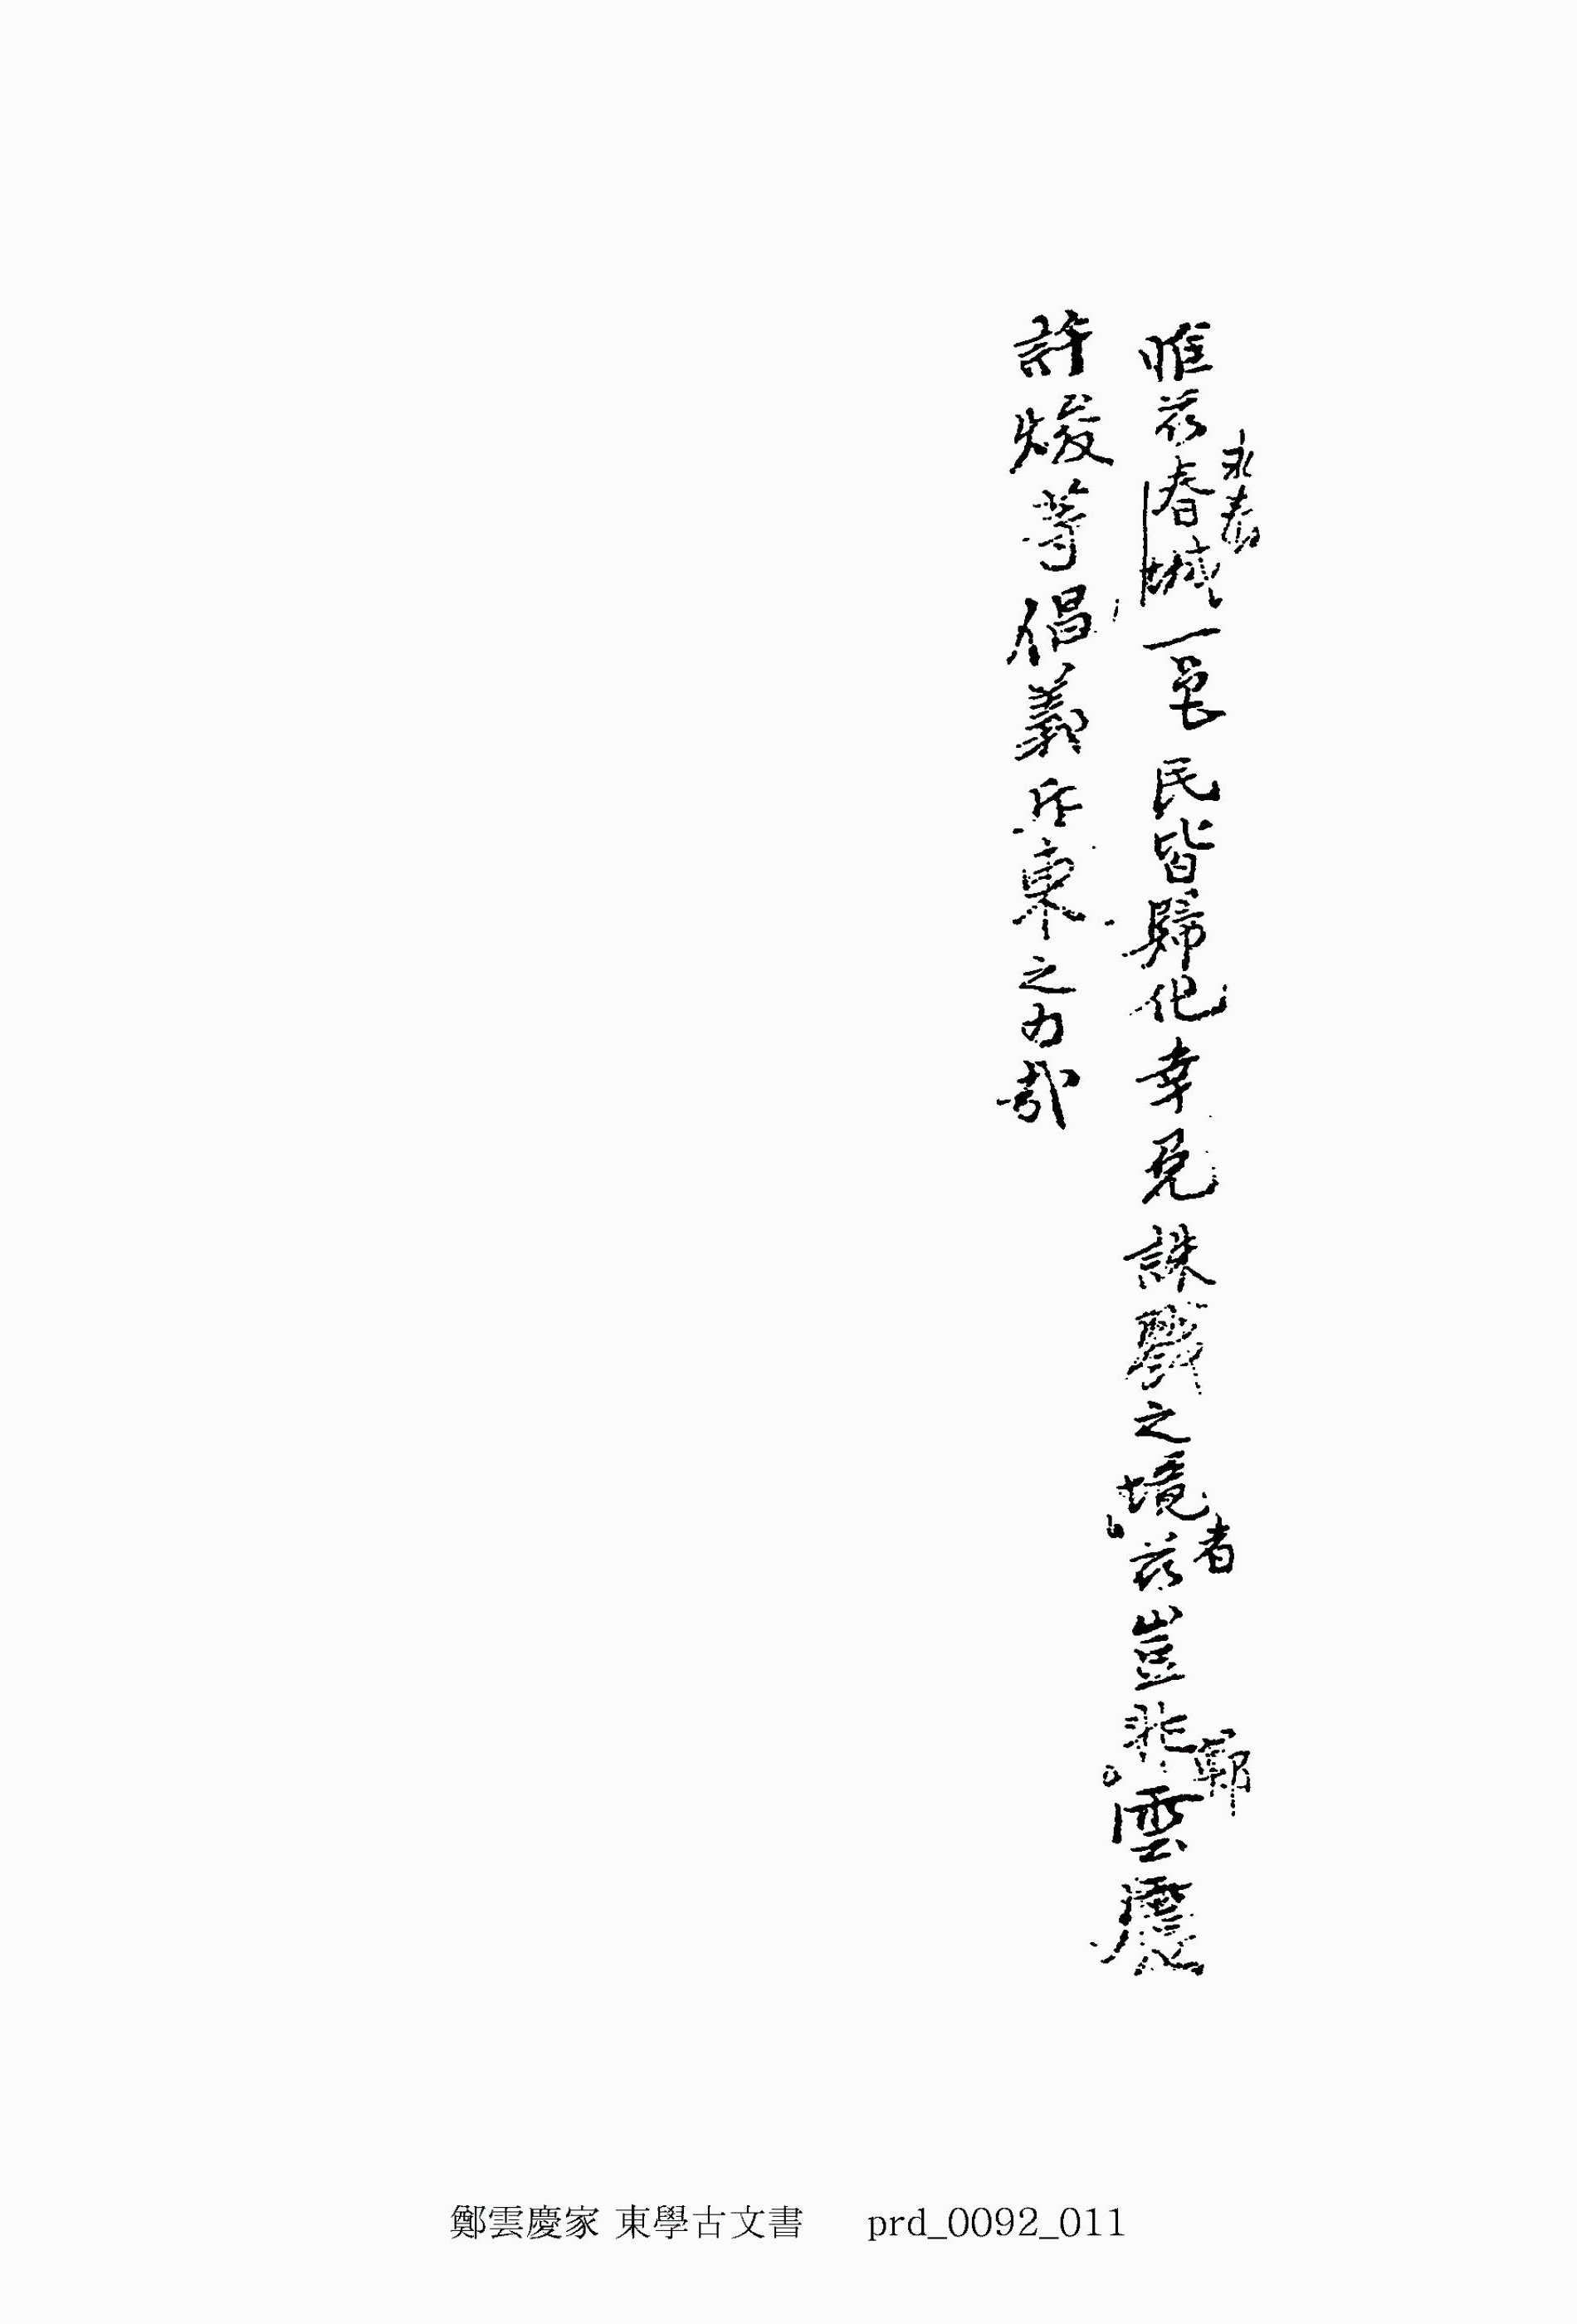 惟茲春城一邑民皆歸化幸免誅戮之境茲豈非雲慶
永春
者
鄭
許焌等倡義斥東之力哉
鄭雲慶家 東學古文書 prd_0092_011